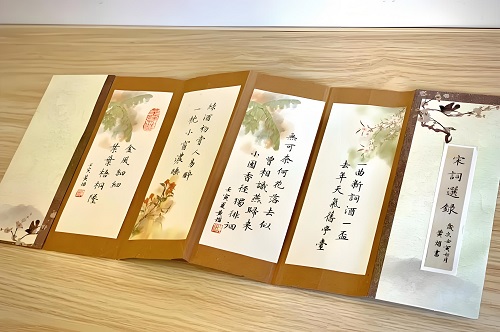 宋詞選錄
歲次壬寅七月
一曲新詞酒一盃
去年天氣舊亭臺
無可奈何花落去似
曾相識燕歸來
小園香徑獨徘徊
綠酒初嘗人易醉
一枕小窗濃睡
金風細細
葉葉梧桐墜